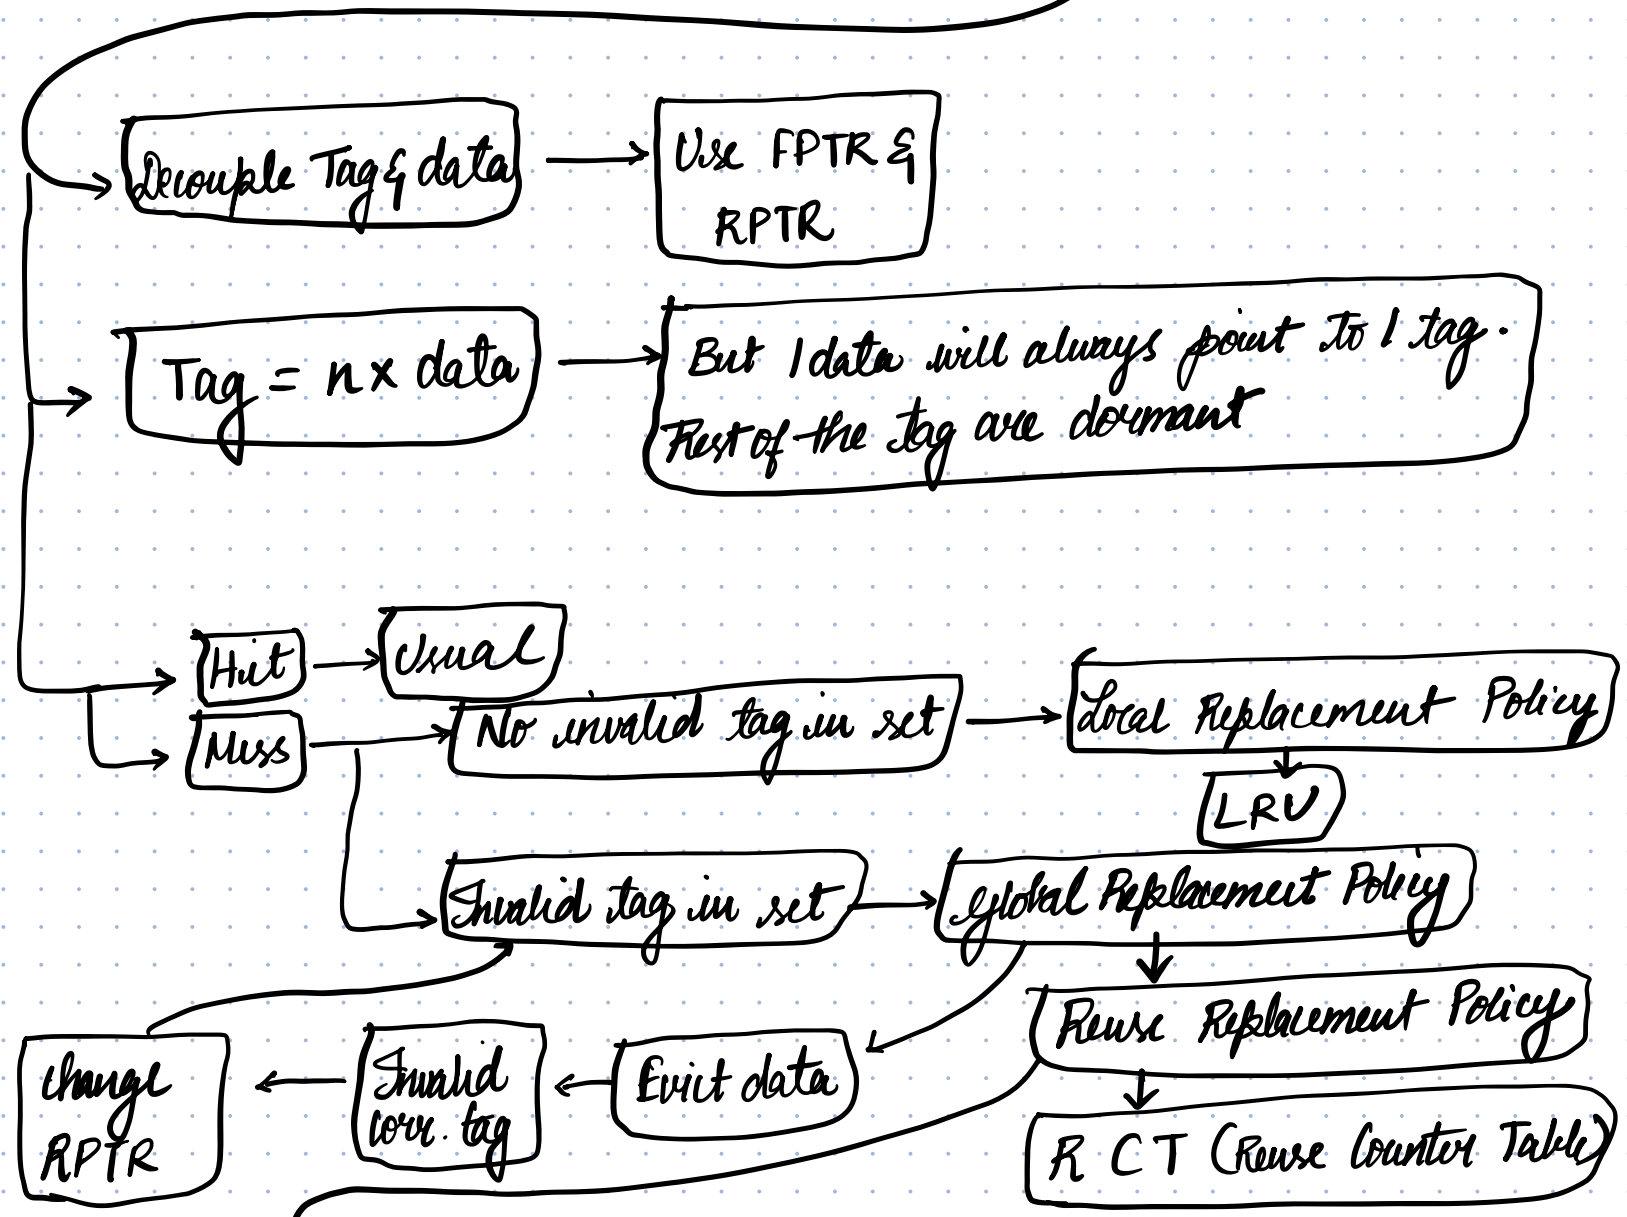 Decouple Tag & data
Use FPTR &
RPTR
Tag = n x data
But 1 data will always point to 1 tag.
Rest of the tag are dormant
Hit
Usual
Miss
No invalid tag in set
Local Replacement Policy
LRU
Invalid tag in set
Global Replacement Policy
Reuse Replacement Policy
Evict data
Invalid
corr. tag
change
RPTR
R C T (Reuse Counter Table)